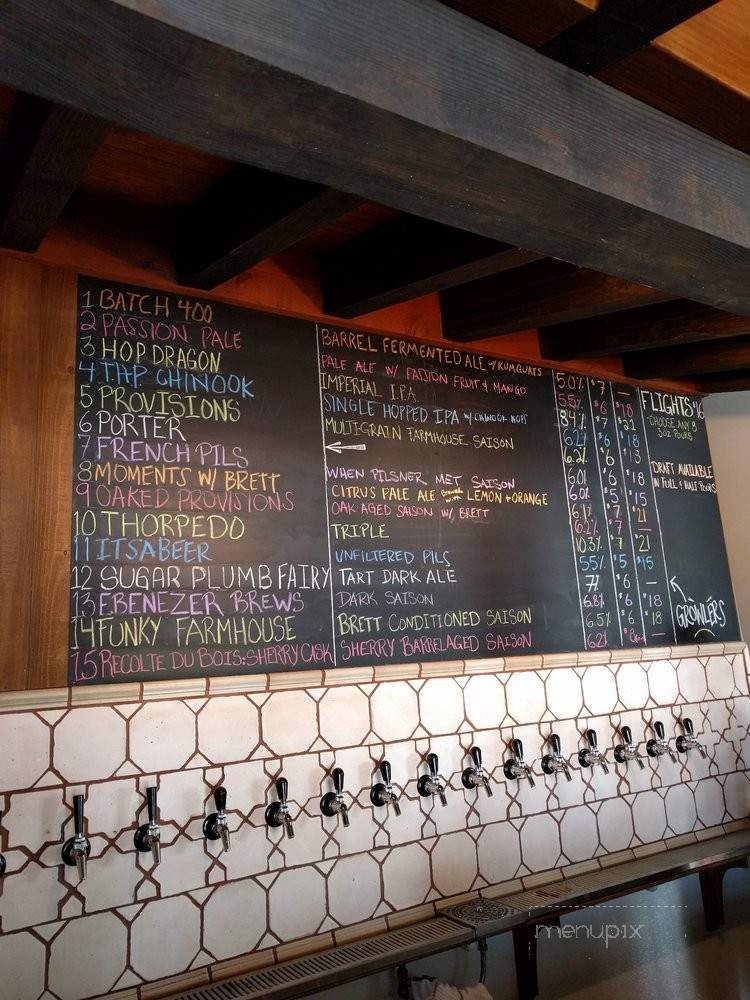 1 BATCH 400
2 PASSION PALE
3 HOP DRAGON
4 THP CHINOOK
5 PROVISIONS
6 PORTER
7 FRENCH PILS
8 MOMENTS W/ BRETT
9 OAKED PROVISIONS
10 THORPEDO
11 ITSABEER
12 SUGAR PLUMB FAIRY
13 EBENEZER BREWS
14 FUNKY FARMHOUSE
15 RECOLTE DU BOIS: SHERRY CASK
BARREL FERMENTED ALE W/ KUMQUATS
PALE ALE W/ PASSION FRUIT & MANGO
IMPERIAL I.P.A.
SINGLE HOPPED IPA W/ CHINOOK HOPS
MULTIGRAIN FARMHOUSE SAISON
WHEN PILSNER MET SAISON
CITRUS PALE ALE LEMON + ORANGE
OAK AGED SAISON W/ BRETT
TRIPLE
UNFILTERED PILS
TART DARK ALE
DARK SAISON
BRETT CONDITIONED SAISON
SHERRY BARREL AGED SAISON
5.0% $7 —
5.5% $6 $18
8.4% $7 $21
6.2% $6 $18
6.2% $6 $18
6.0% $6 $18
6.0% $5 $15
$7 $21
6.2% $7 —
10.3% $7 $21
5.5% $5 $15
$6 —
6.8% $6 $18
6.5% $6 $18
6.2% —
FLIGHTS $16
CHOOSE ANY 8
3OZ POURS
DRAFT AVAILABLE
IN FULL & HALF POURS
GROWLERS
menupix